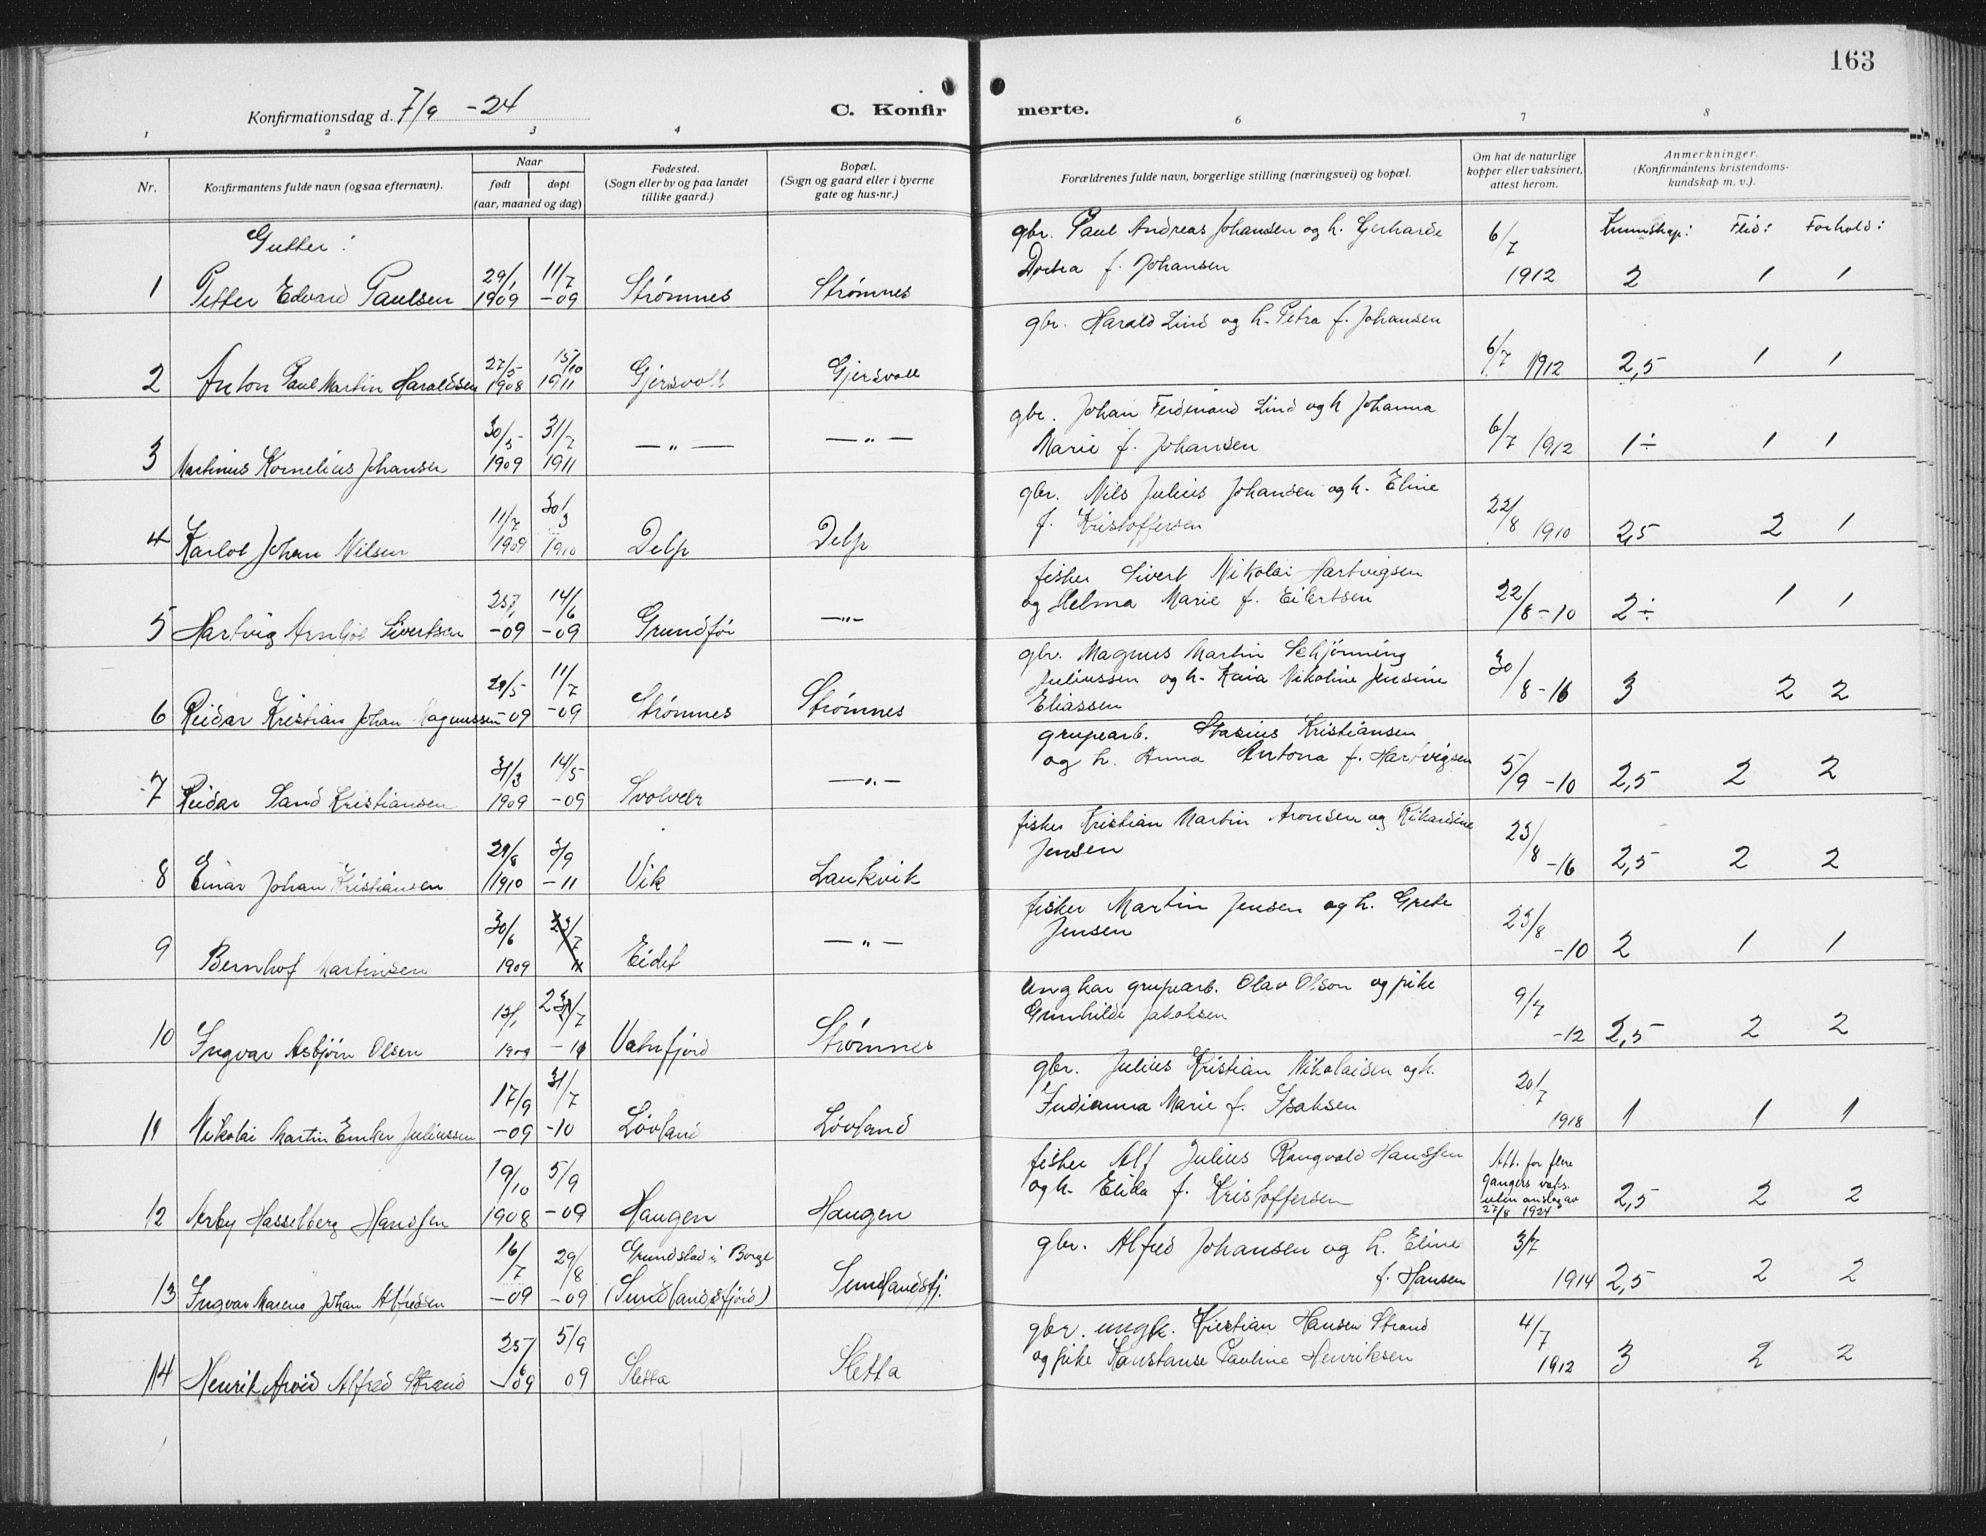 163
Konfirmationsdag d. 7/9 -24
C. Konfirmerte.
1 2 3 4 6 7 8
Nr.
Konfirmantens fulde navn (ogsaa efternavn).
Naar
født
døpt
(aar, maaned og dag)
Fødested.
(Sogn eller by og paa landet
tillike gaard.)
Bopæl.
(Sogn og gaard eller i byerne
gate og hus-nr.)
Forældrenes fulde navn, borgerlige stilling (næringsvei) og bopæl.
Om hat de naturlige
kopper eller vaksinert,
attest herom.
Anmerkninger.
(Konfirmantens kristendoms-
kundskap m. v.).
Gutter:
Kunnskap: Flid: Forhold:
1 Petter Edvard Paulsen 29/1 1909 11/7 -09 Strømnes Strømnes
gbr. Paul Andreas Johansen og h. Gerharde
Dortea f. Johansen
6/7 1912 2 1 1
2 Anton Paul Martin Haraldsen 27/5 1908 15/10 1911 Gjersvoll Gjersvoll
gbr. Harald Lind og h. Petra f. Johansen
6/7 1912 2,5 1 1
3 Martinus Kornelius Johansen 30/5 1909 31/7 1911 — " — — " —
gbr. Johan Ferdinand Lind og h Johanna
Marie f. Johansen
6/7 1912 1÷ 1 1
4 Karlot Johan Nilsen 11/7 1909 30/3 1910 Delp Delp
gbr. Nils Julius Johansen og h. Eline
f. Kristoffersen
22/8 1910 2,5 2 1
5 Hartvig Arnljot Sivertsen -09 14/6 -09 Grundfør — " —
fisker Sivert Nikolai Hartvigsen
og Helma Marie f. Eilertsen
22/8 -10 2÷ 1 1
6 Reidar Kristian Johan Magnussen 29/5 -09 11/7 -09 Strømnes Strømnes
gbr. Magnus Martin Schjønning
Juliussen og h. Kaia Nikoline Jensine
Eliassen
30/8 -16 3 2 2
7 Reidar Sand Kristiansen 31/3 1909 14/5 -09 Svolvær — " —
grupearb. Stasius Kristiansen
og h. Anna Antona f. Hartvigsen
5/9 -10 2,5 2 2
8 Einar Johan Kristiansen 29/8 1910 3/9 -11 Vik Laukvik
fisker Kristian Martin Aronsen og Rikardine
Jensen
23/8 -16 2,5 2 2
9 Bernhof Martinsen 30/6 1909 23/7 11 Eidet — " —
fisker Martin Jensen og h. Grete
Jensen
23/8 -10 2 1 1
10 Ingvar Asbjørn Olsen 13/1 1909 Vatnfjord Strømnes
Ungkar grupearb. Olav Olson og pike
Gunhilde Jakobsen
9/7 -12 2,5 2 2
11 Nikolai Martin Emker Juliussen 17/9 -09 31/7 -10 Løvland Løvland
gbr. Julius Kristian Nikolaisen og h.
Indianna Marie f. Isaksen
20/7 1918 1 1 1
12 Arby Hasselberg Hanssen 19/10 1908 5/9 -09 Haugen Haugen
fisker Alf Julius Rangvald Hanssen
og h. Elida f. Kristoffersen
Att. for flere
gangers vaks.
uten anslag av
27/8 1924
2,5 2 2
13 Ingvar Marens Johan Alfredsen 16/7 -09 29/8 -09 Grundstad i Borge
(Sundlandsfjord) Sundlandsfj.
gbr. Alfred Johansen og h. Eline
f. Hansen
3/7 1914 2,5 2 2
14 Henrik Arvid Alfred Strand 25/6 -09 5/9 09 Sletta Sletta
gbr. ungk. Kristian Hansen Strand
og pike Konstanse Pauline Henriksen
4/7 1912 3 2 2